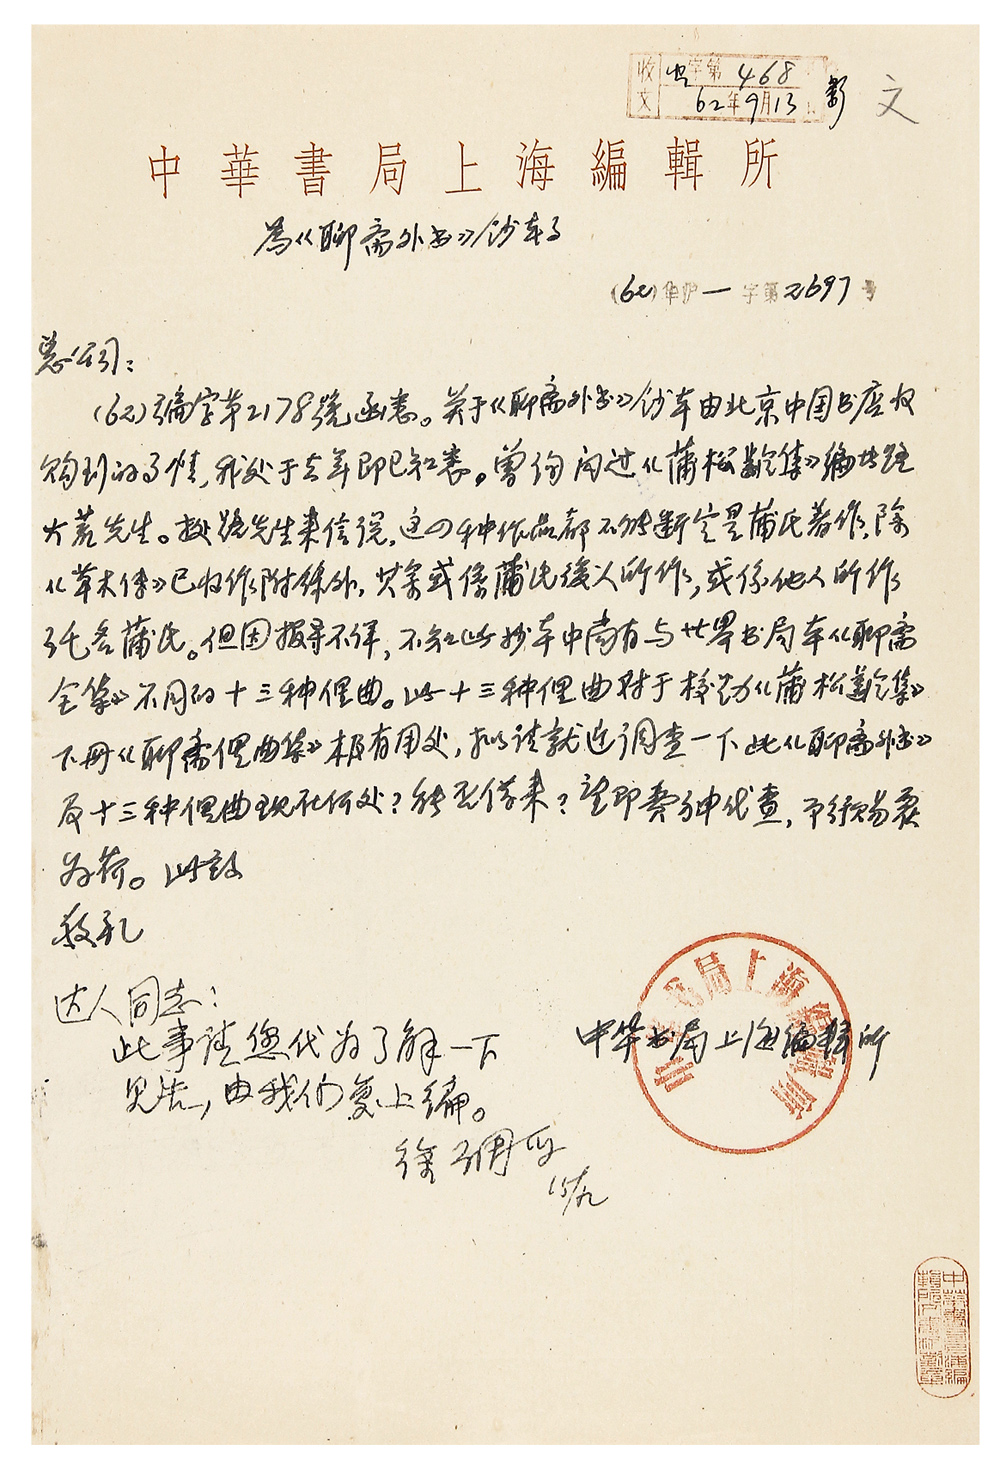 收文 字第468
62年9月13
文
中華書局上海編輯所
為《聊斋外书》钞本事
(62)华沪一字第2697号
总公司：
(62)编字第2178號函悉。关于《聊斋外书》钞本由北京中国书店收
购到的事情，我处于去年即已知悉。曾询问过《蒲松齡集》编者路
大荒先生。据路先生来信说，这四种作品都不能断定是蒲氏著作，除
《草木传》已收作附錄外，其余或係蒲氏後人所作，或係他人所作
託名蒲氏。但因报导不详，不知此抄本中尚有与世界书局本《聊斋
全集》不同的十三种俚曲。此十三种俚曲对于校勘《蒲松齡集》
下册《聊斋俚曲集》极有用处，拟请就近调查一下此《聊斋外书》
及十三种俚曲现在何处？能否借来？望即费神代查，予以赐覆
为荷。此致
敬礼
中华书局上海编辑所
中華書局上海編輯所
达人同志：
此事请您代为了解一下
见告，由我们复上编。
徐调孚
15/九